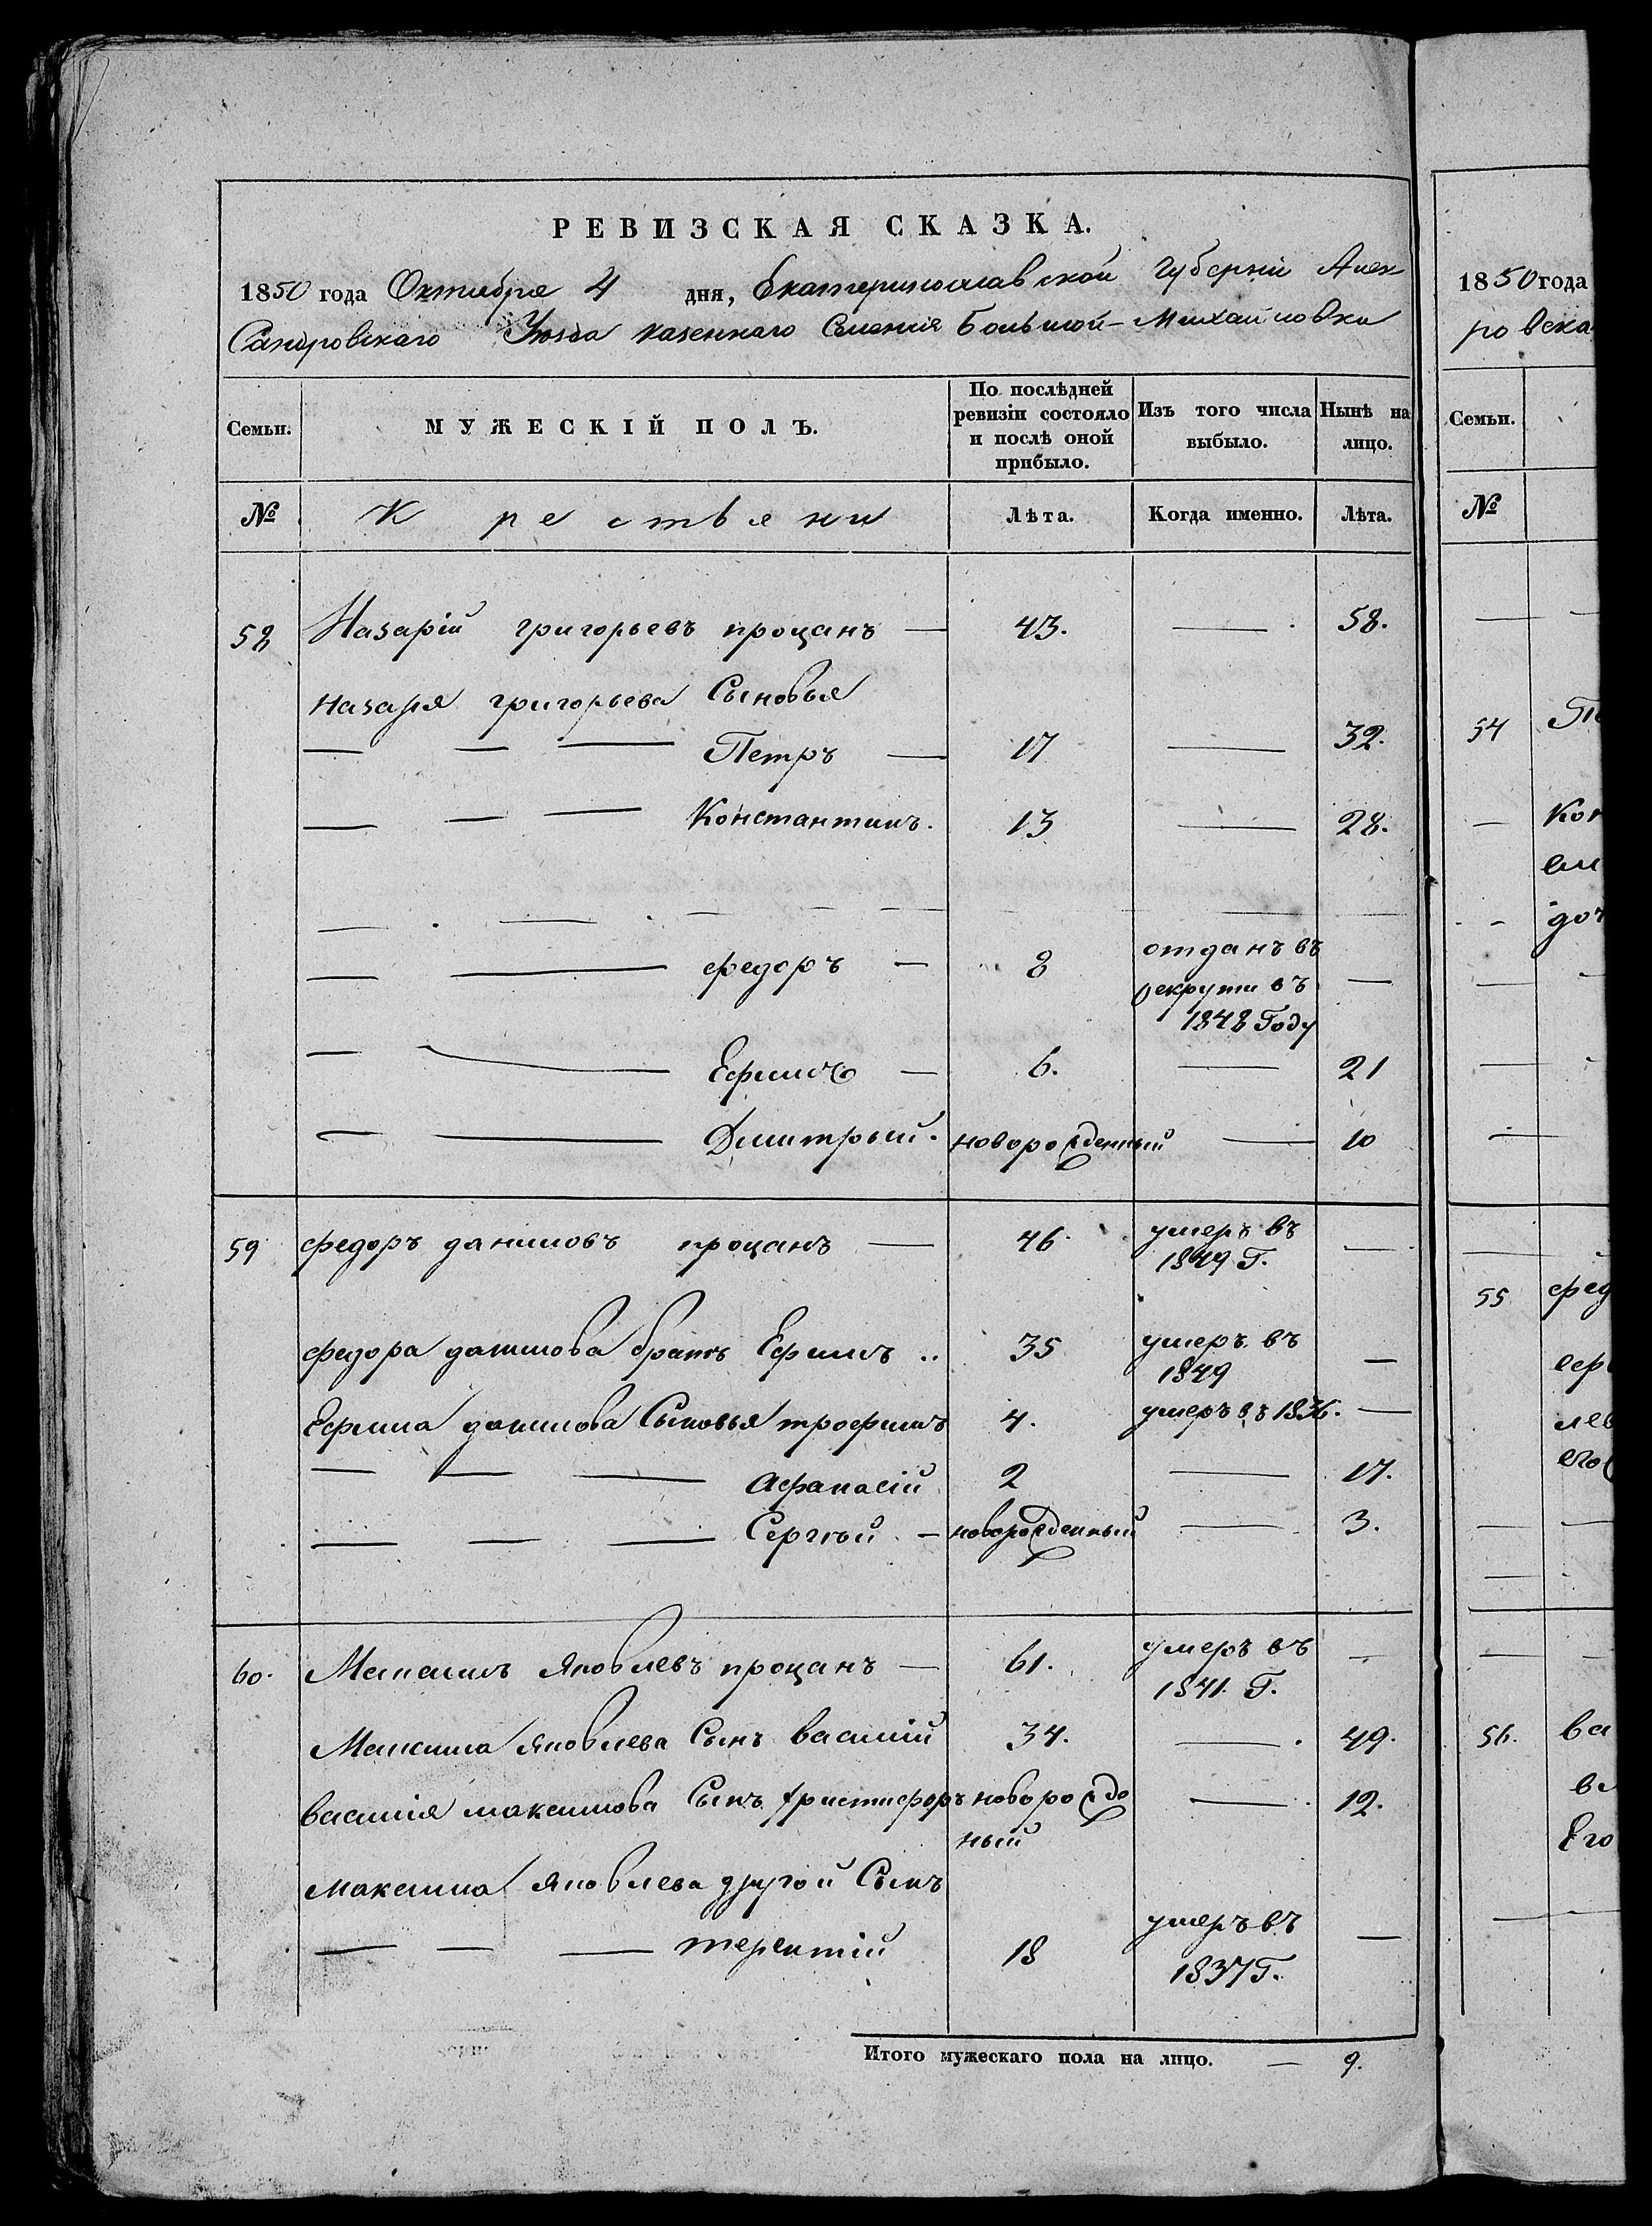 РЕВИЗСКАЯ СКАЗКА.
1850 года Октября 4 дня, Екатеринославской Губерніи Алек
Сандровскаго Уѣзда казеннаго Селенія Большой-Михайловки
Семьи. МУЖЕСКІЙ ПОЛЪ. По послѣдней ревизіи состояло и послѣ оной прибыло. Изъ того числа выбыло. Нынѣ на лицо.
№ Крестьяни Лѣта. Когда именно. Лѣта.
58 Назарій григорьевъ процанъ — 43. — 58.
назарія григорьева Сыновья
— — — Петръ — 17 — 32.
— — — Константинъ. 13 — 28.
— — федоръ — 8 отданъ въ рекруты въ 1848 Году —
— — Ефимъ — 6. — 21
— — Дмитрый. новорожденный — 10
59 федоръ даниловъ процанъ — 46. умеръ въ 1849 Г. —
федора данилова братъ Ефимъ .. 35 умеръ въ 1849 —
Ефима данилова Сыновья трофимъ 4. умеръ въ 1836. —
— — — Афанасій 2 — 17.
— — — Сергѣй — новорожденный — 3.
60. Максимъ Яковлевъ процанъ — 61. умеръ въ 1841. Г. —
Максима Яковлева Сынъ василій 34. — 49.
василія максимова Сынъ христифоръ новорожде ный — 12.
максима Яковлева другой Сынъ
— — — терентій 18 умеръ въ 1837 Г. —
Итого мужескаго пола на лицо. — 9.
1850 года
ровска
Семьи.
№
54
Кон
доч
55 фед
56. ва
Его